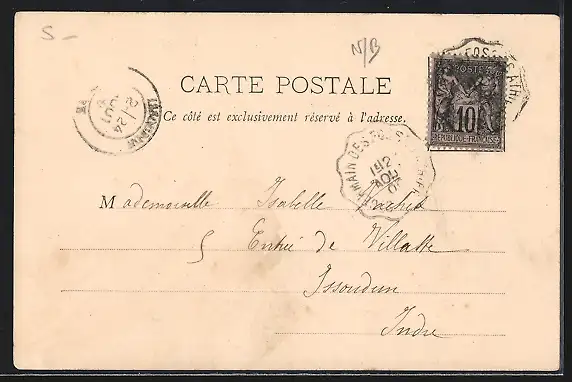 S -
N/B
CARTE POSTALE
Ce côté est exclusivement réservé à l'adresse.
POSTE
10
REPUBLIQUE FRANÇAISE
24
MAIN DES FOSSÉS
12
AOU
Mademoiselle Isabelle
5 Entrée de Villatte
Issoudun
Indre